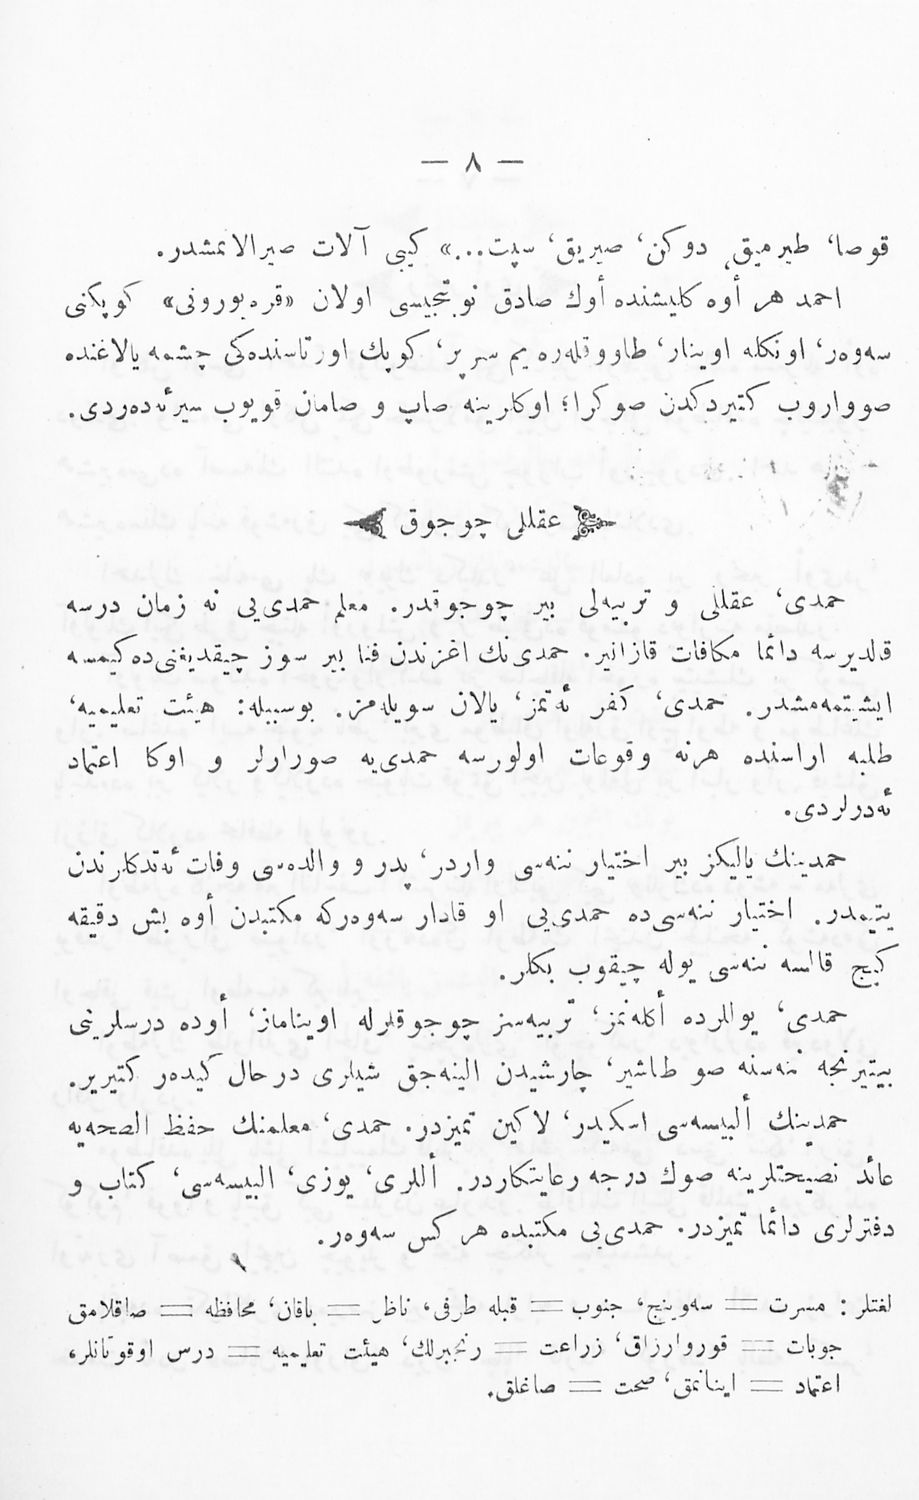 — ٨ —
قوصا، طیرمیق، دوكن، صیریق، سپت...» كیبی آلات صیرالانمشدر.
احمد هر أوه كلیشنده أوك صادق نوبتجیسی اولان «قره بورونی» كوپكنی
سه‌وه‌ر، اونكله اوینار، طاووقله‌ره یم سرپر، كوپك اورتاسنده‌كی چشمه یالاغنده
صوواروب كتیردكدن صوكرا؛ اوكارینه صاپ و صامان قویوب سیرئه‌ده‌ردی.
عقللی چوجوق
حمدی، عقللی و تربیه‌لی بیر چوجوقدر. معلم حمدی‌یی نه زمان درسه
قالدیرسه دائما مكافات قازانیر. حمدی‌نك اغزندن فنا بیر سوز چیقدیغنی‌ده كیمسه
ایشتمه‌مشدر. حمدی، كفر ئه‌تمز، یالان سویله‌مز. بوسبیله: هیئت تعلیمیه،
طلبه اراسنده هرنه وقوعات اولورسه حمدی‌یه صورارلر و اوكا اعتماد
ئه‌درلردی.
حمدینك یالیكز بیر اختیار ننه‌سی واردر، پدر و والده‌سی وفات ئه‌تدكلرندن
یتیمدر. اختیار ننه‌سی‌ده حمدی‌یی او قادار سه‌وه‌ركه مكتبدن أوه بش دقیقه
كیج قالسه ننه‌سی یوله چیقوب بكلر.
حمدی، یوللرده أكله‌نمز، تربیه‌سز چوجوقلرله اویناماز، أوده درسلرینی
بیتیرنجه ننه‌سنه صو طاشیر، چارشیدن الینه‌جق شیلری درحال كیده‌ر كتیریر.
حمدینك ألبیسه‌سی اسكیدر، لاكین تمیزدر. حمدی، معلمنك حفظ الصحه‌یه
عائد نصیحتلرینه صوك درجه رعایتكاردر. أللری، یوزی، البیسه‌سی، كتاب و
دفترلری دائما تمیزدر. حمدی‌یی مكتبده هر كس سه‌وه‌ر.
لغتلر: مسرت = سه‌وینج، جنوب = قبله طرفی، ناظر = باقان، محافظه = صاقلامق
جوبات = قوروارزاق، زراعت = رنجبرلك، هیئت تعلیمیه = درس اوقوتانلر،
اعتماد = اینانمق، صحت = صاغلق.